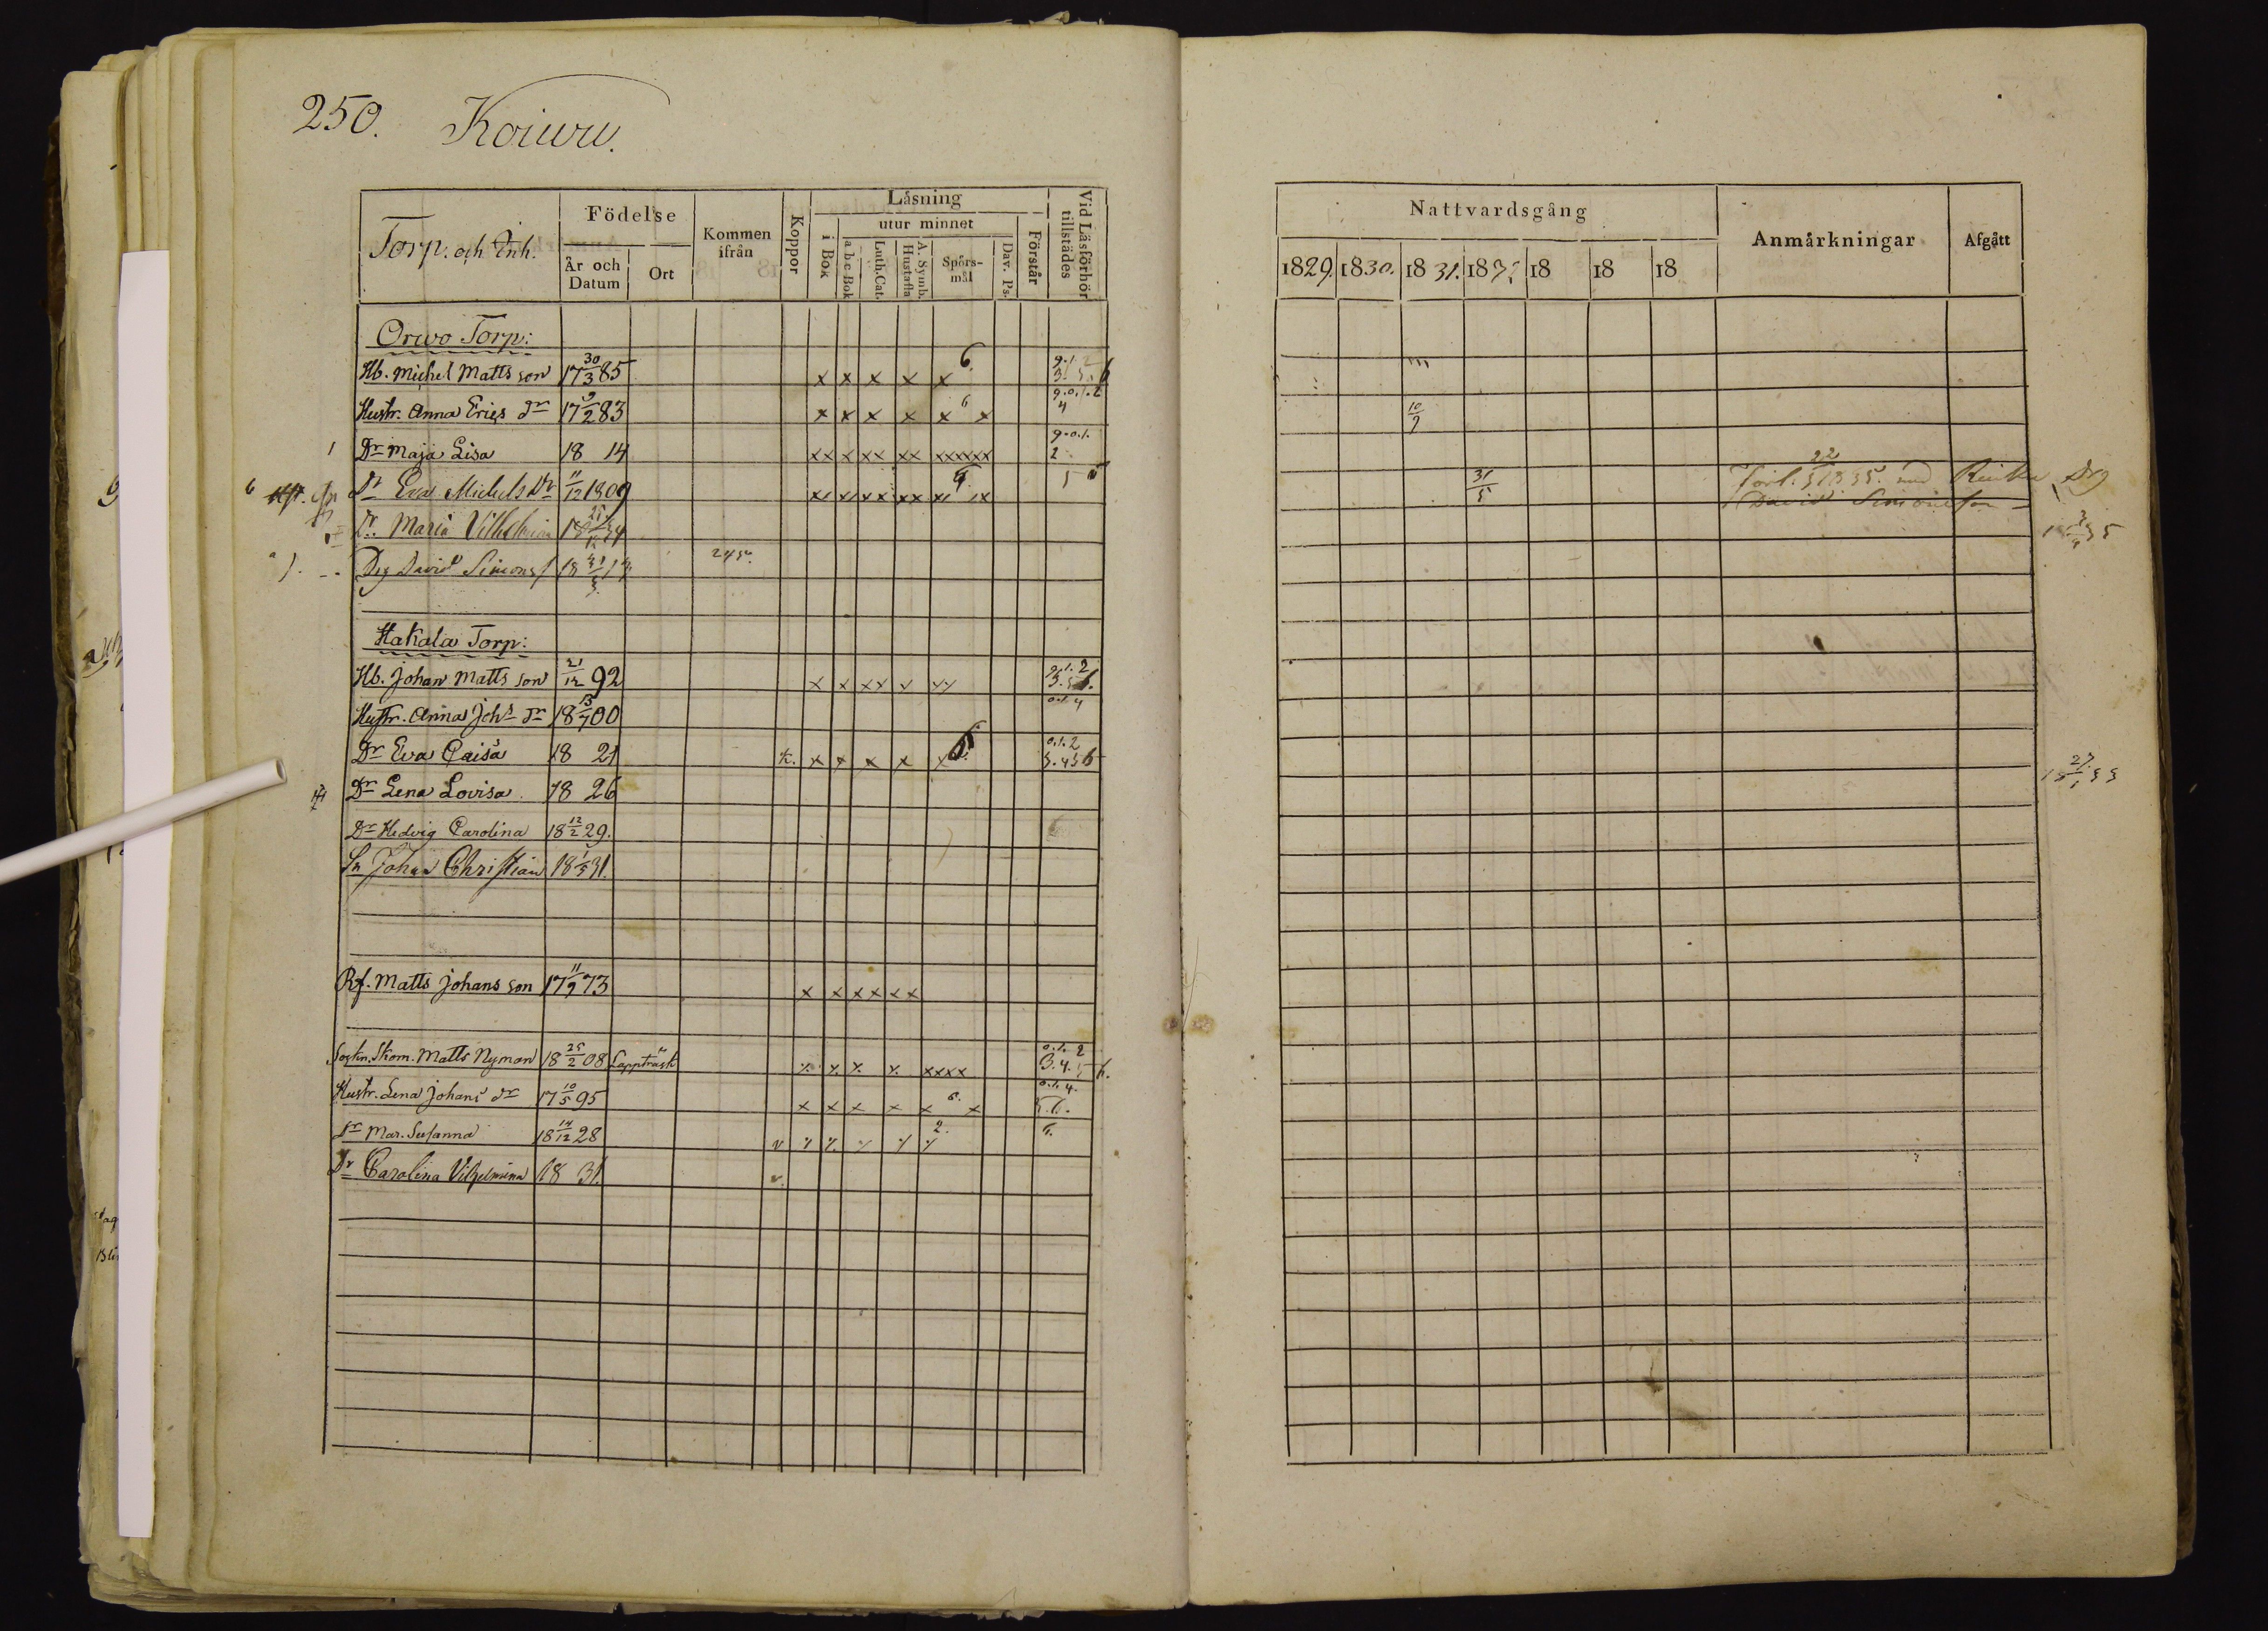 250. Koiuru.
Torp. och Inh.
Födelse
År och Datum
Ort
Kommen ifrån
Koppor
Läsning
i Bok
utur minnet
a b c Bok
Luth. Cat.
A. Symb. Hustafla
Spörsmål
Dav. Ps.
Förstår
Vid Läsförhör tillstådes
Nattvardsgång
1829 1830. 18 31. 18 18 18 18
Anmärkningar
Afgått
Orwo Torp:
Hb. Michel Matts son 17 30/3 85 x x x x x 6
Hustr. Anna Erics dr 17 9/2 83 x x x x x 6 x 9.0.1.2 4 10/9
1 Dr Maja Lisa 18 14 xx x xx xx xxxxxx 9.0.1. 2
6 Dr Eva Michels Dr 11/12 1809 31/5 Förl. 1835. med Drg
David Simonsson
Dr. Maria Vilhelmina
Drg David Simons
Hakala Torp:
Hb. Johan Matts son 21/12 92 x x xx x xx
Hustr. Anna Johs dr 18 13/7 00 0.1. 4
Dr Eva Caisa 18 21 k. x x x x x 6. 0.1.2 3.4 5 6
Dr Lena Lovisa 18 26
Dr Hedvig Carolina 18 12/2 29.
Sn Johan Christian 18 1/5 31.
Rf. Matts Johans son 17 11/9 73 x x xx xx
Sockn. Skom. Matts Nyman 18 25/2 08 Lappträsk x x x x xxxx 0.1. 2 3.4.5 6.
Hustr. Lena Johans dr 17 10/5 95 x x x x x 6. x 0.1. 4. 5.6.
Dr Mar. Susanna 18 14/12 28 v 2. 6.
Dr Carolina Vilhelmina 18 31. v.